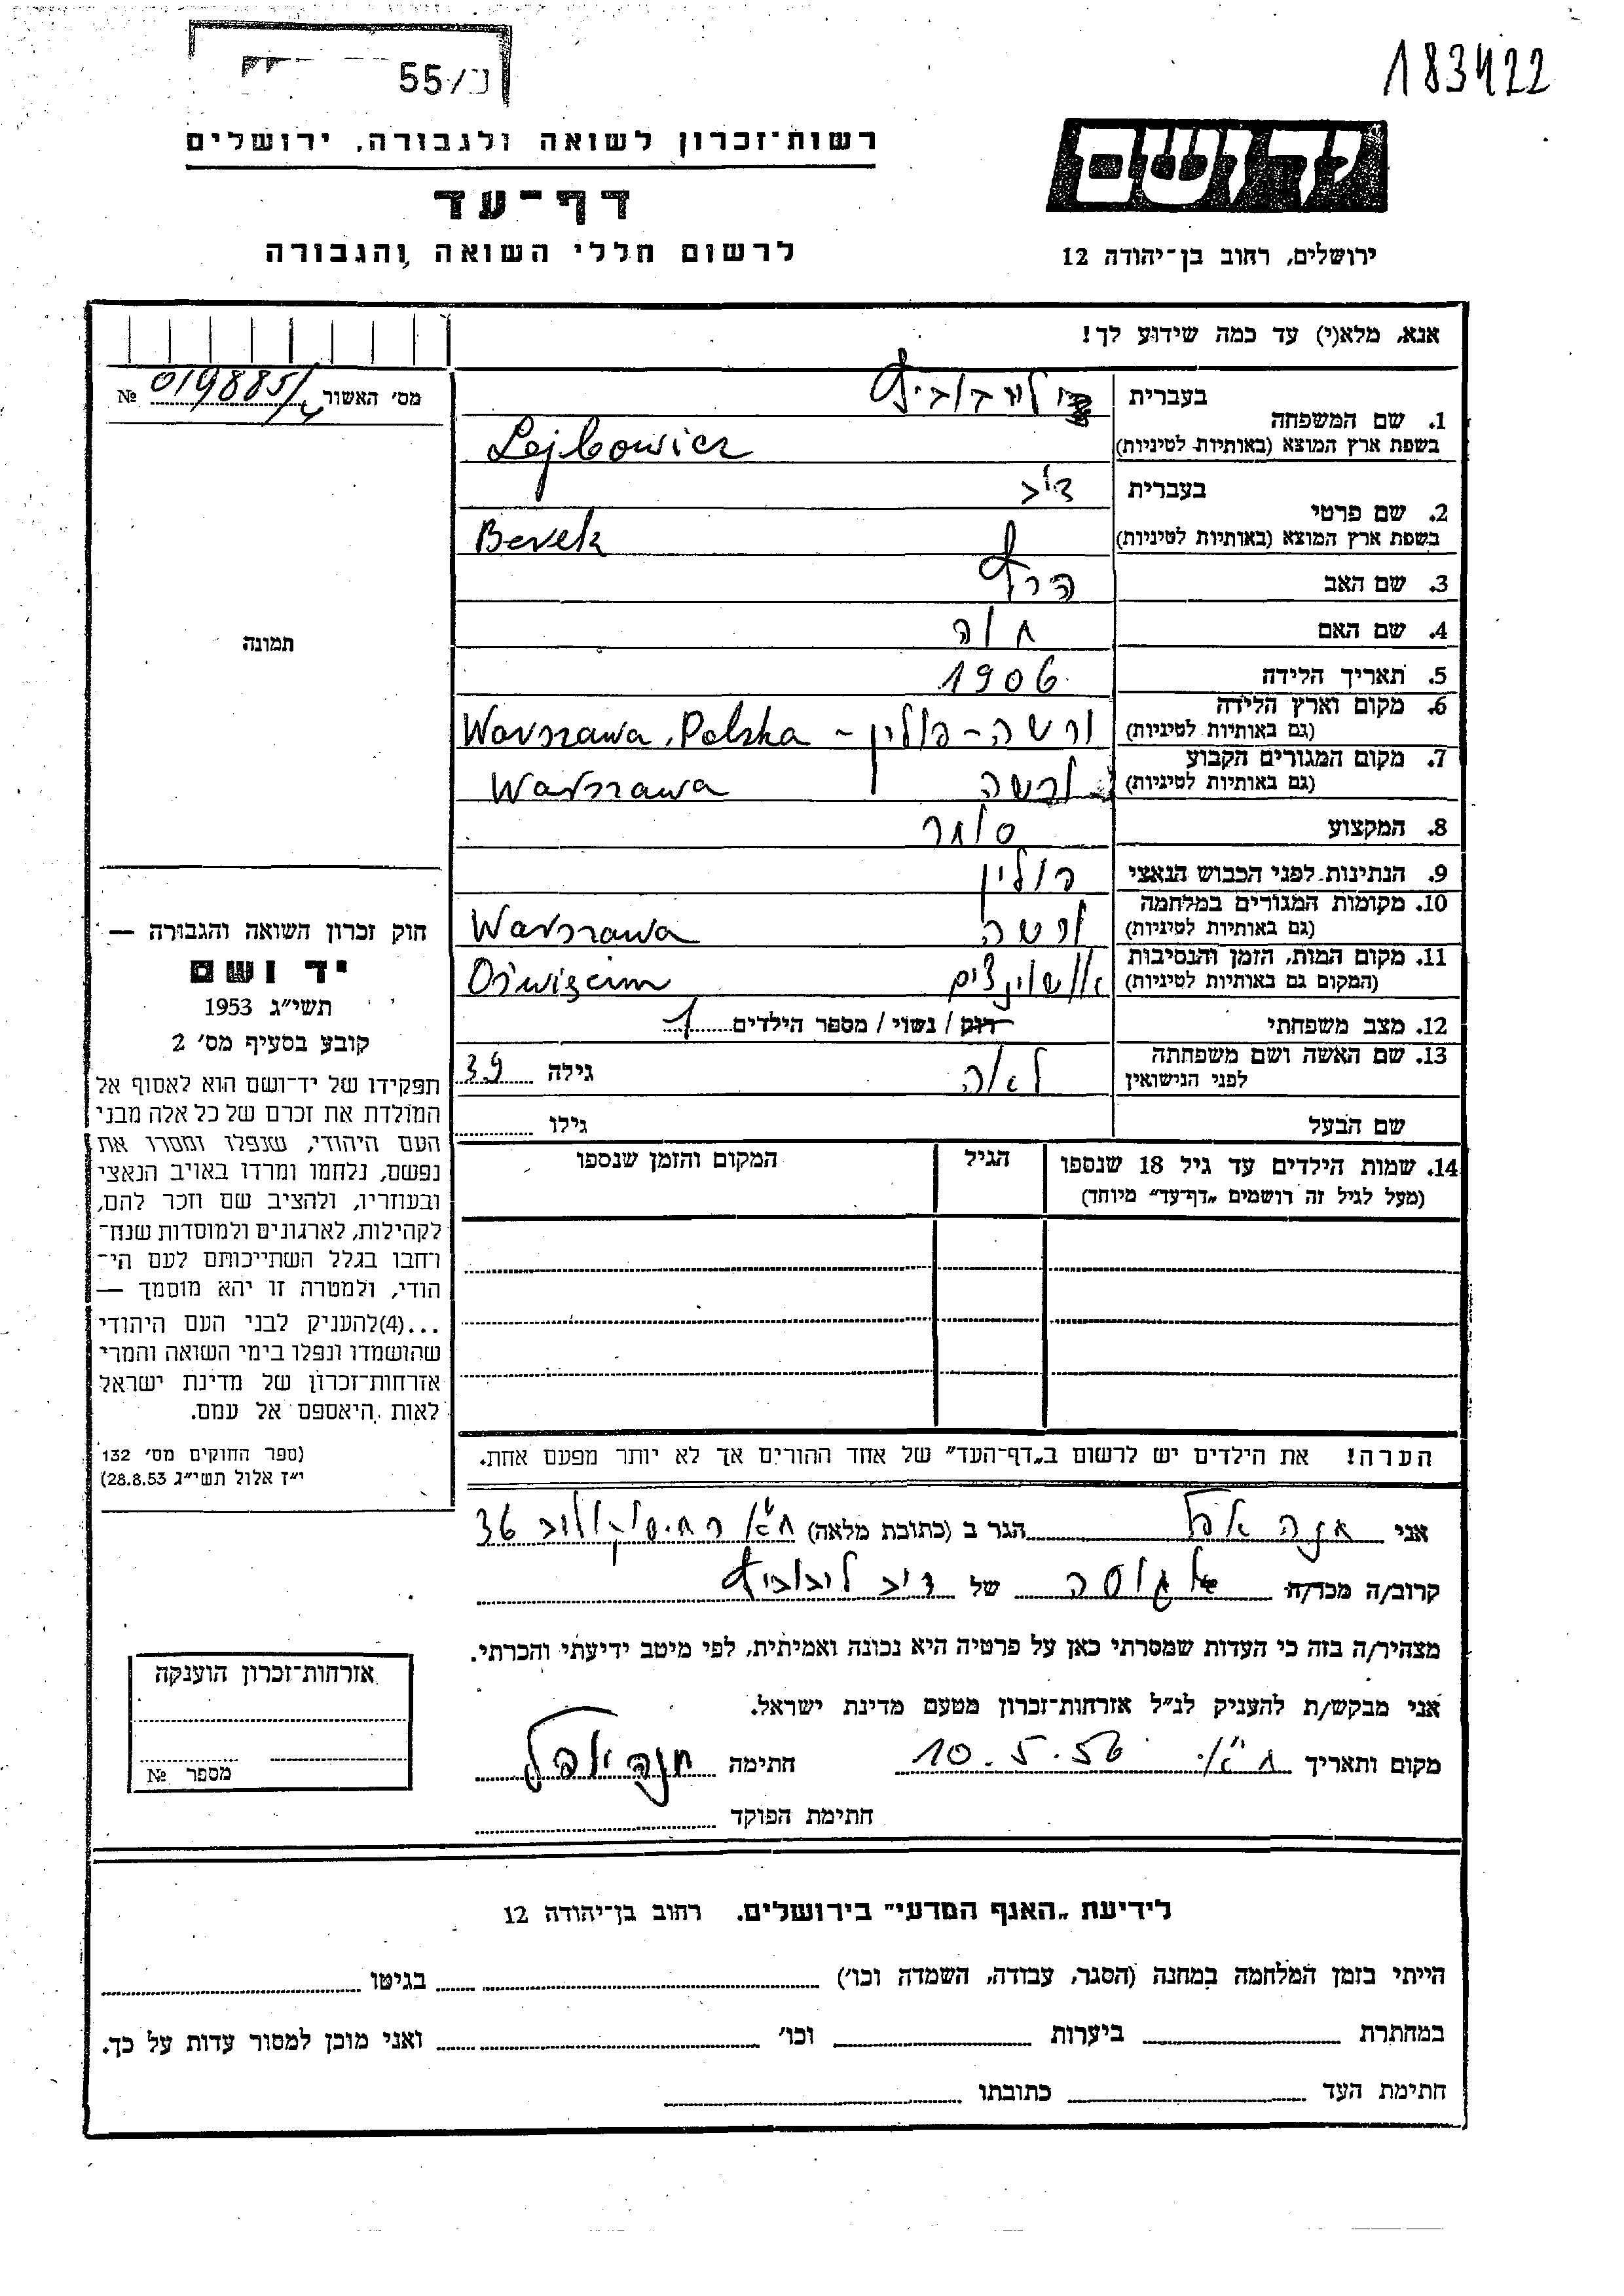 55/נ
183422
רשות־זכרון לשואה ולגבורה, ירושלים
דף־עד
לרשום חללי השואה והגבורה
יד ושם
ירושלים, רחוב בן־יהודה 12
אנא, מלא(י) עד כמה שידוע לך!
מס' האשור 019885/ №
תמונה
1. שם המשפחה בעברית
בשפת ארץ המוצא (באותיות לטיניות) Lejbowicz
2. שם פרטי בעברית
בשפת ארץ המוצא (באותיות לטיניות) Berek
3. שם האב
4. שם האם חוה
5. תאריך הלידה 1906
6. מקום וארץ הלידה (גם באותיות לטיניות) ורשה - פולין - Warszawa, Polska
7. מקום המגורים הקבוע (גם באותיות לטיניות) ורשה Warszawa
8. המקצוע סוחר
9. הנתינות לפני הכבוש הנאצי פולין
10. מקומות המגורים במלחמה (גם באותיות לטיניות) ורשה Warszawa
11. מקום המות, הזמן והנסיבות (המקום גם באותיות לטיניות) Oświęcim
12. מצב משפחתי רווק / נשוי / מספר הילדים 1
13. שם האשה ושם משפחתה לפני הנישואין לאה גילה 39
שם הבעל גילו
14. שמות הילדים עד גיל 18 שנספו הגיל המקום והזמן שנספו
(מעל לגיל זה רושמים "דף־עד" מיוחד)
הערה! את הילדים יש לרשום ב"דף־העד" של אחד ההורים אך לא יותר מפעם אחת.
חוק זכרון השואה והגבורה —
יד ושם
תשי"ג 1953
קובע בסעיף מס' 2
תפקידו של יד־ושם הוא לאסוף אל
המולדת את זכרם של כל אלה מבני
העם היהודי, שנפלו ומסרו את
נפשם, נלחמו ומרדו באויב הנאצי
ובעוזריו, ולהציב שם וזכר להם,
לקהילות, לארגונים ולמוסדות שנח־
רחבו בגלל השתייכותם לעם הי־
הודי, ולמטרה זו יהא מוסמך —
...(4)להעניק לבני העם היהודי
שהושמדו ונפלו בימי השואה והמרי
אזרחות־זכרון של מדינת ישראל
לאות היאספם אל עמם.
(ספר החוקים מס' 132
י"ז אלול תשי"ג 28.8.53)
אני הגר ב (כתובת מלאה) ת"א 36
קרוב/ה מכר/ה של
מצהיר/ה בזה כי העדות שמסרתי כאן על פרטיה היא נכונה ואמיתית, לפי מיטב ידיעתי והכרתי.
אני מבקש/ת להעניק לנ"ל אזרחות־זכרון מטעם מדינת ישראל.
מקום ותאריך ת"א 10.5.56 חתימה
חתימת הפוקד
אזרחות־זכרון הוענקה
מספר №
לידיעת "האגף המדעי" בירושלים. רחוב בן־יהודה 12
הייתי בזמן המלחמה במחנה (הסגר, עבודה, השמדה וכו') בגיטו
במחתרת ביערות וכו' ואני מוכן למסור עדות על כך.
חתימת העד כתובתו